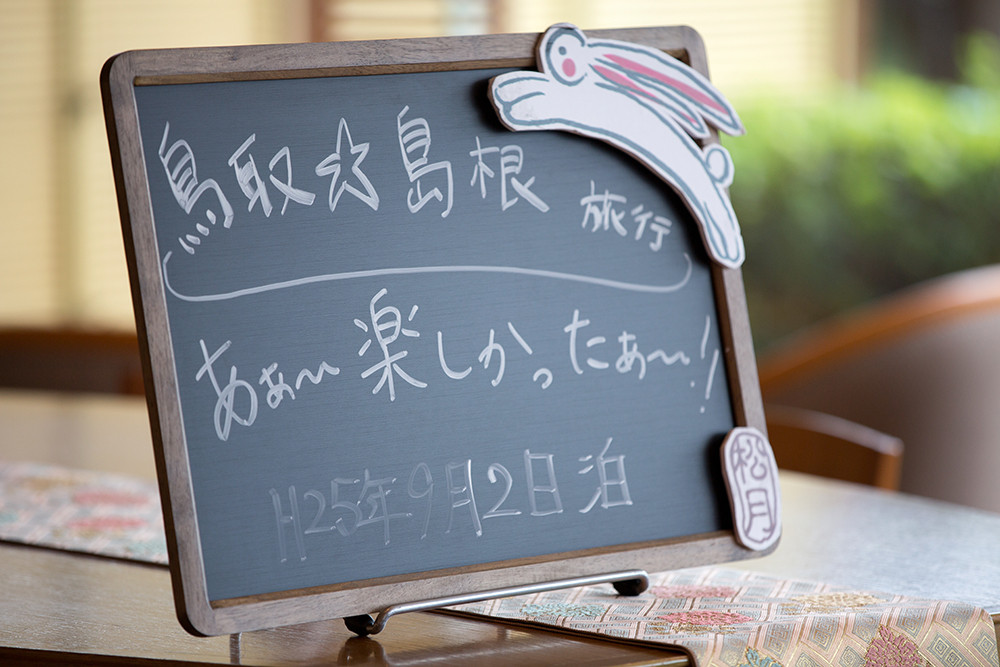 鳥取☆島根 旅行
あぁ〜楽しかったぁ〜!!
H25年9月2日泊
松月